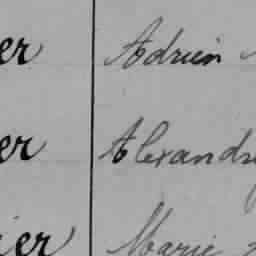 er Adrien
er Alexandr
ier Marie